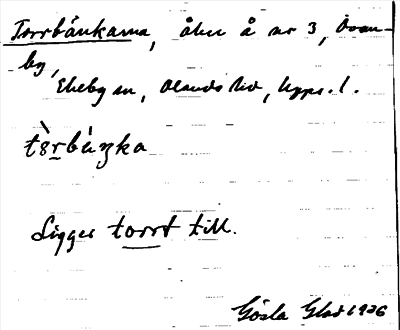 Torrbänkarna, åker å nr 3, Ovan-
by,
Ekeby sn, Olands hd, Upps. l.
tòrbáŋka
Ligger torrt till.
Gösta 1936